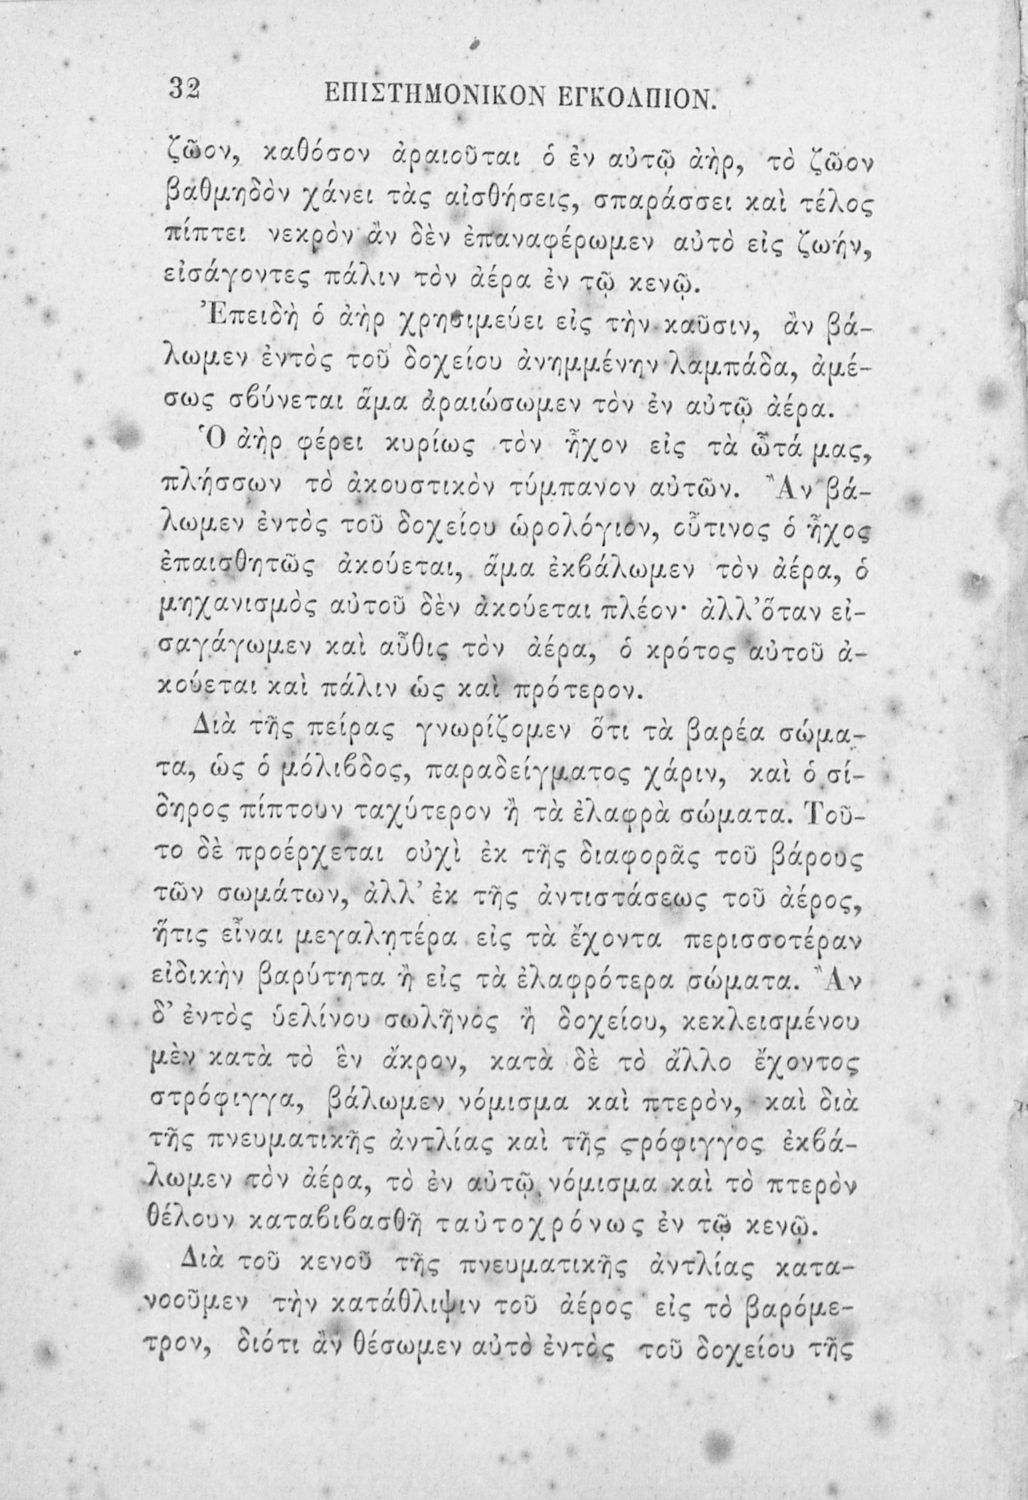 32 ΕΠΙΣΤΗΜΟΝΙΚΟΝ ΕΓΚΟΛΠΙΟΝ.
ζῶον, καθόσον ἀραιοῦται ὁ ἐν αὐτῷ ἀὴρ, τὸ ζῶον
βαθμηδὸν χάνει τὰς αἰσθήσεις, σπαράσσει καὶ τέλος
πίπτει νεκρὸν ἂν δὲν ἐπαναφέρωμεν αὐτὸ εἰς ζωήν,
εἰσάγοντες πάλιν τὸν ἀέρα ἐν τῷ κενῷ.
Ἐπειδὴ ὁ ἀὴρ χρησιμεύει εἰς τὴν καῦσιν, ἂν βά-
λωμεν ἐντὸς τοῦ δοχείου ἀνημμένην λαμπάδα, ἀμέ-
σως σϐύνεται ἅμα ἀραιώσωμεν τὸν ἐν αὐτῷ ἀέρα.
Ὁ ἀὴρ φέρει κυρίως τὸν ἦχον εἰς τὰ ὦτά μας,
πλήσσων τὸ ἀκουστικὸν τύμπανον αὐτῶν. Ἂν βά-
λωμεν ἐντὸς τοῦ δοχείου ὡρολόγιον, οὗτινος ὁ ἦχος
ἐπαισθητῶς ἀκούεται, ἅμα ἐκϐάλωμεν τὸν ἀέρα, ὁ
μηχανισμὸς αὐτοῦ δὲν ἀκούεται πλέον· ἀλλ’ὅταν εἰ-
σαγάγωμεν καὶ αὖθις τὸν ἀέρα, ὁ κρότος αὐτοῦ ἀ-
κούεται καὶ πάλιν ὡς καὶ πρότερον.
Διὰ τῆς πείρας γνωρίζομεν ὅτι τὰ βαρέα σώμα-
τα, ὡς ὁ μόλιϐδος, παραδείγματος χάριν, καὶ ὁ σί-
δηρος πίπτουν ταχύτερον ἢ τὰ ἐλαφρὰ σώματα. Τοῦ-
το δὲ προέρχεται οὐχὶ ἐκ τῆς διαφορᾶς τοῦ βάρους
τῶν σωμάτων, ἀλλ’ ἐκ τῆς ἀντιστάσεως τοῦ ἀέρος,
ἥτις εἶναι μεγαλητέρα εἰς τὰ ἔχοντα περισσοτέραν
εἰδικὴν βαρύτητα ἢ εἰς τὰ ἐλαφρότερα σώματα. Ἂν
δ’ ἐντὸς ὑελίνου σωλῆνος ἢ δοχείου, κεκλεισμένου
μὲν κατὰ τὸ ἓν ἄκρον, κατὰ δὲ τὸ ἄλλο ἔχοντος
στρόφιγγα, βάλωμεν νόμισμα καὶ πτερὸν, καὶ διὰ
τῆς πνευματικῆς ἀντλίας καὶ τῆς ϛρόφιγγος ἐκϐά-
λωμεν τὸν ἀέρα, τὸ ἐν αὐτῷ νόμισμα καὶ τὸ πτερὸν
θέλουν καταϐιϐασθῆ ταὐτοχρόνως ἐν τῷ κενῷ.
Διὰ τοῦ κενοῦ τῆς πνευματικῆς ἀντλίας κατα-
νοοῦμεν τὴν κατάθλιψιν τοῦ ἀέρος εἰς τὸ βαρόμε-
τρον, διότι ἂν θέσωμεν αὐτὸ ἐντὸς τοῦ δοχείου τῆς